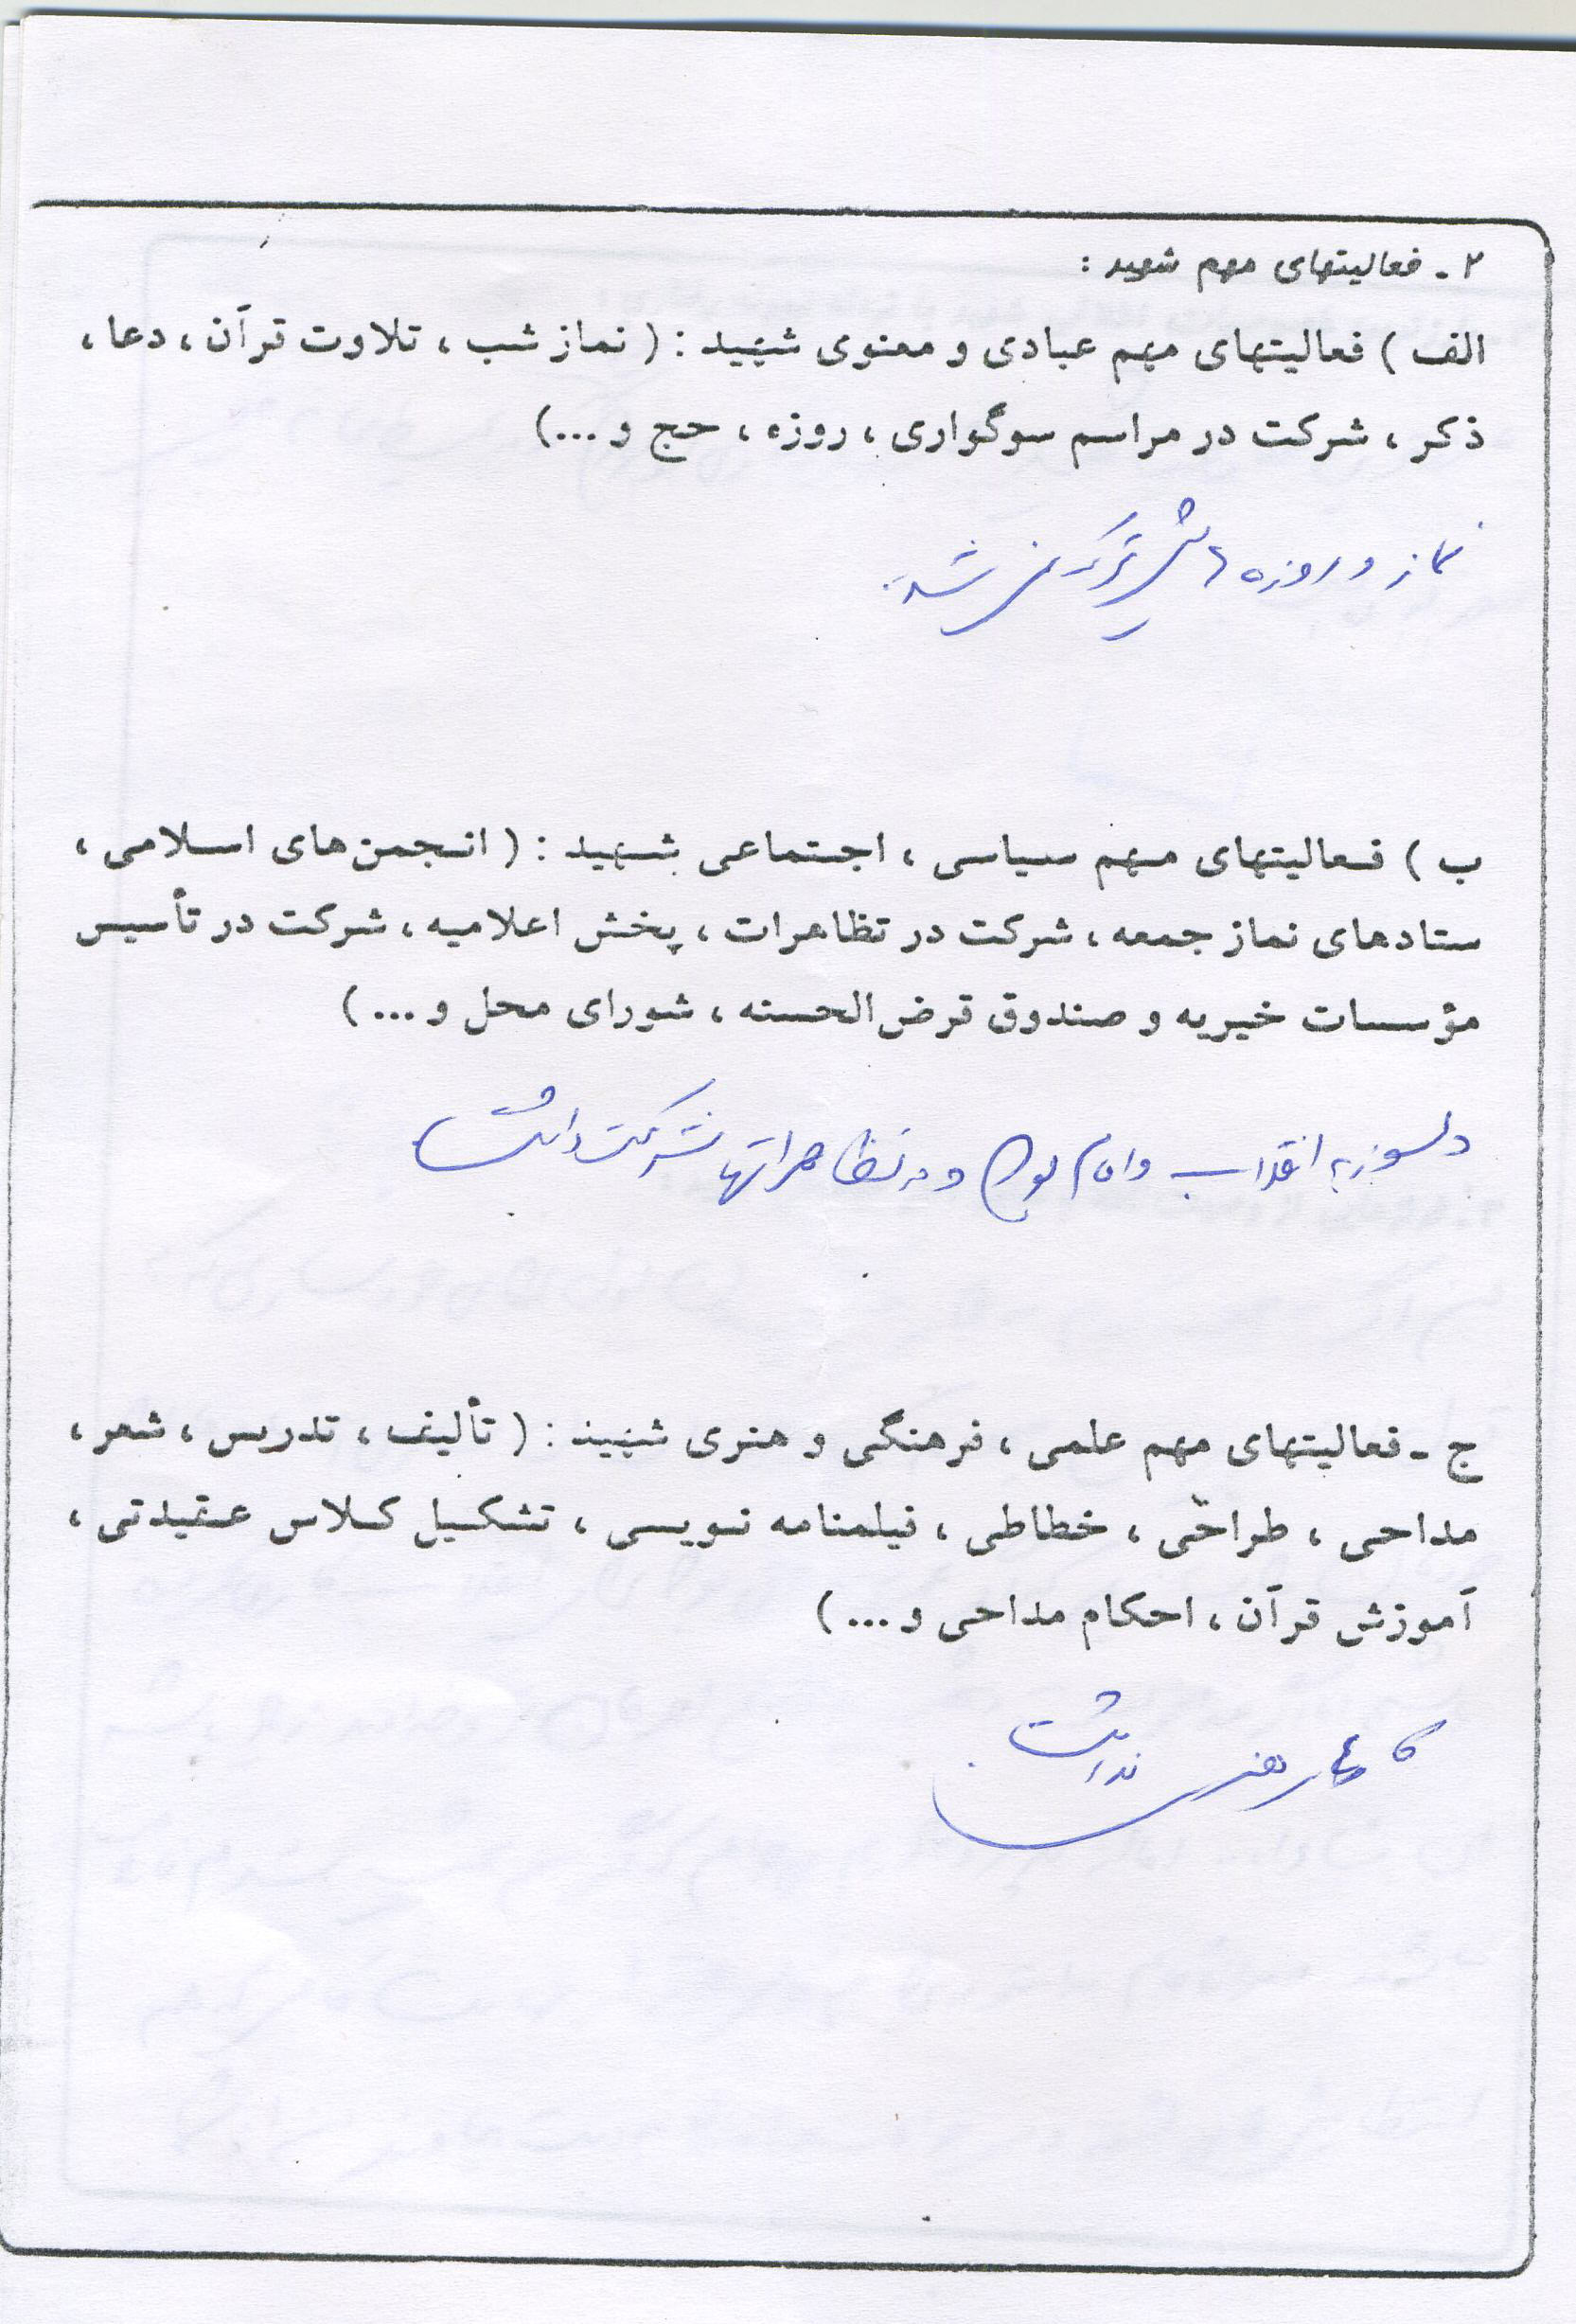 ۲ - فعالیتهای مهم شهید :
الف ) فعالیتهای مهم عبادی و معنوی شهید : ( نماز شب ، تلاوت قرآن ، دعا ،
ذکر ، شرکت در مراسم سوگواری ، روزه ، حج و ...)
نماز و روزه اش ترک نمی شد.
ب ) فعالیتهای مهم سیاسی ، اجتماعی شهید : ( انجمن‌های اسلامی ،
ستادهای نماز جمعه ، شرکت در تظاهرات ، پخش اعلامیه ، شرکت در تأسیس
مؤسسات خیریه و صندوق قرض‌الحسنه ، شورای محل و ... )
دلسوز به انقلاب و امام بود و در تظاهراتها شرکت داشت
ج - فعالیتهای مهم علمی ، فرهنگی و هنری شهید : ( تألیف ، تدریس ، شعر ،
مداحی ، طراحّی ، خطاطی ، فیلمنامه نویسی ، تشکیل کلاس عقیدتی ،
آموزش قرآن ، احکام مداحی و ... )
هنری نداشت.